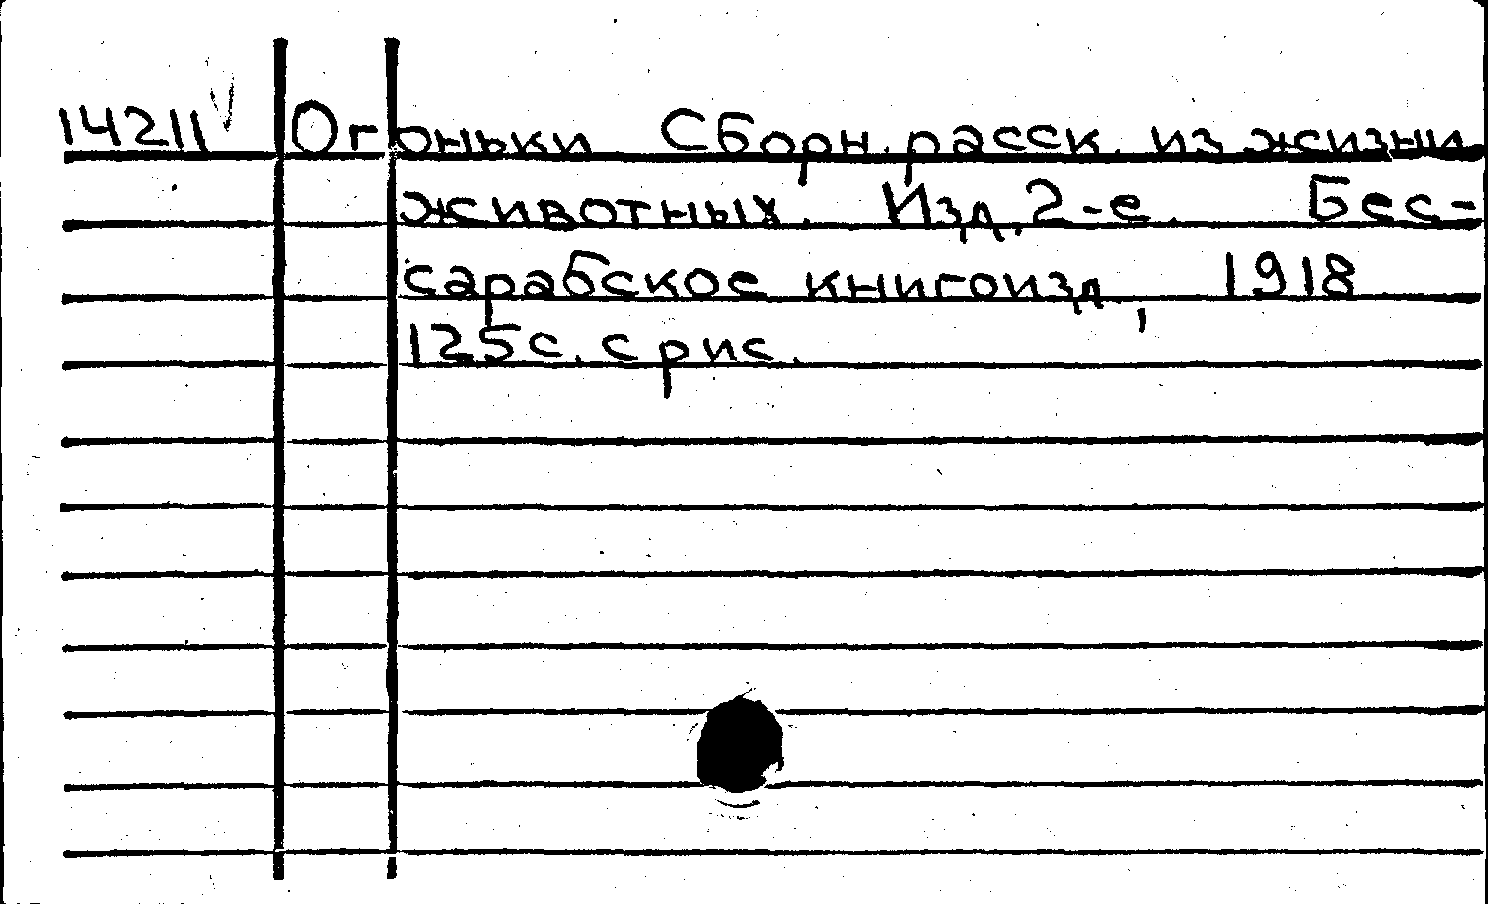 14211 V Огоньки Сборн. расск. из жизни
животных. Изд. 2-е. Бес-
сарабское книгоизд, 1918
125с. с рис.